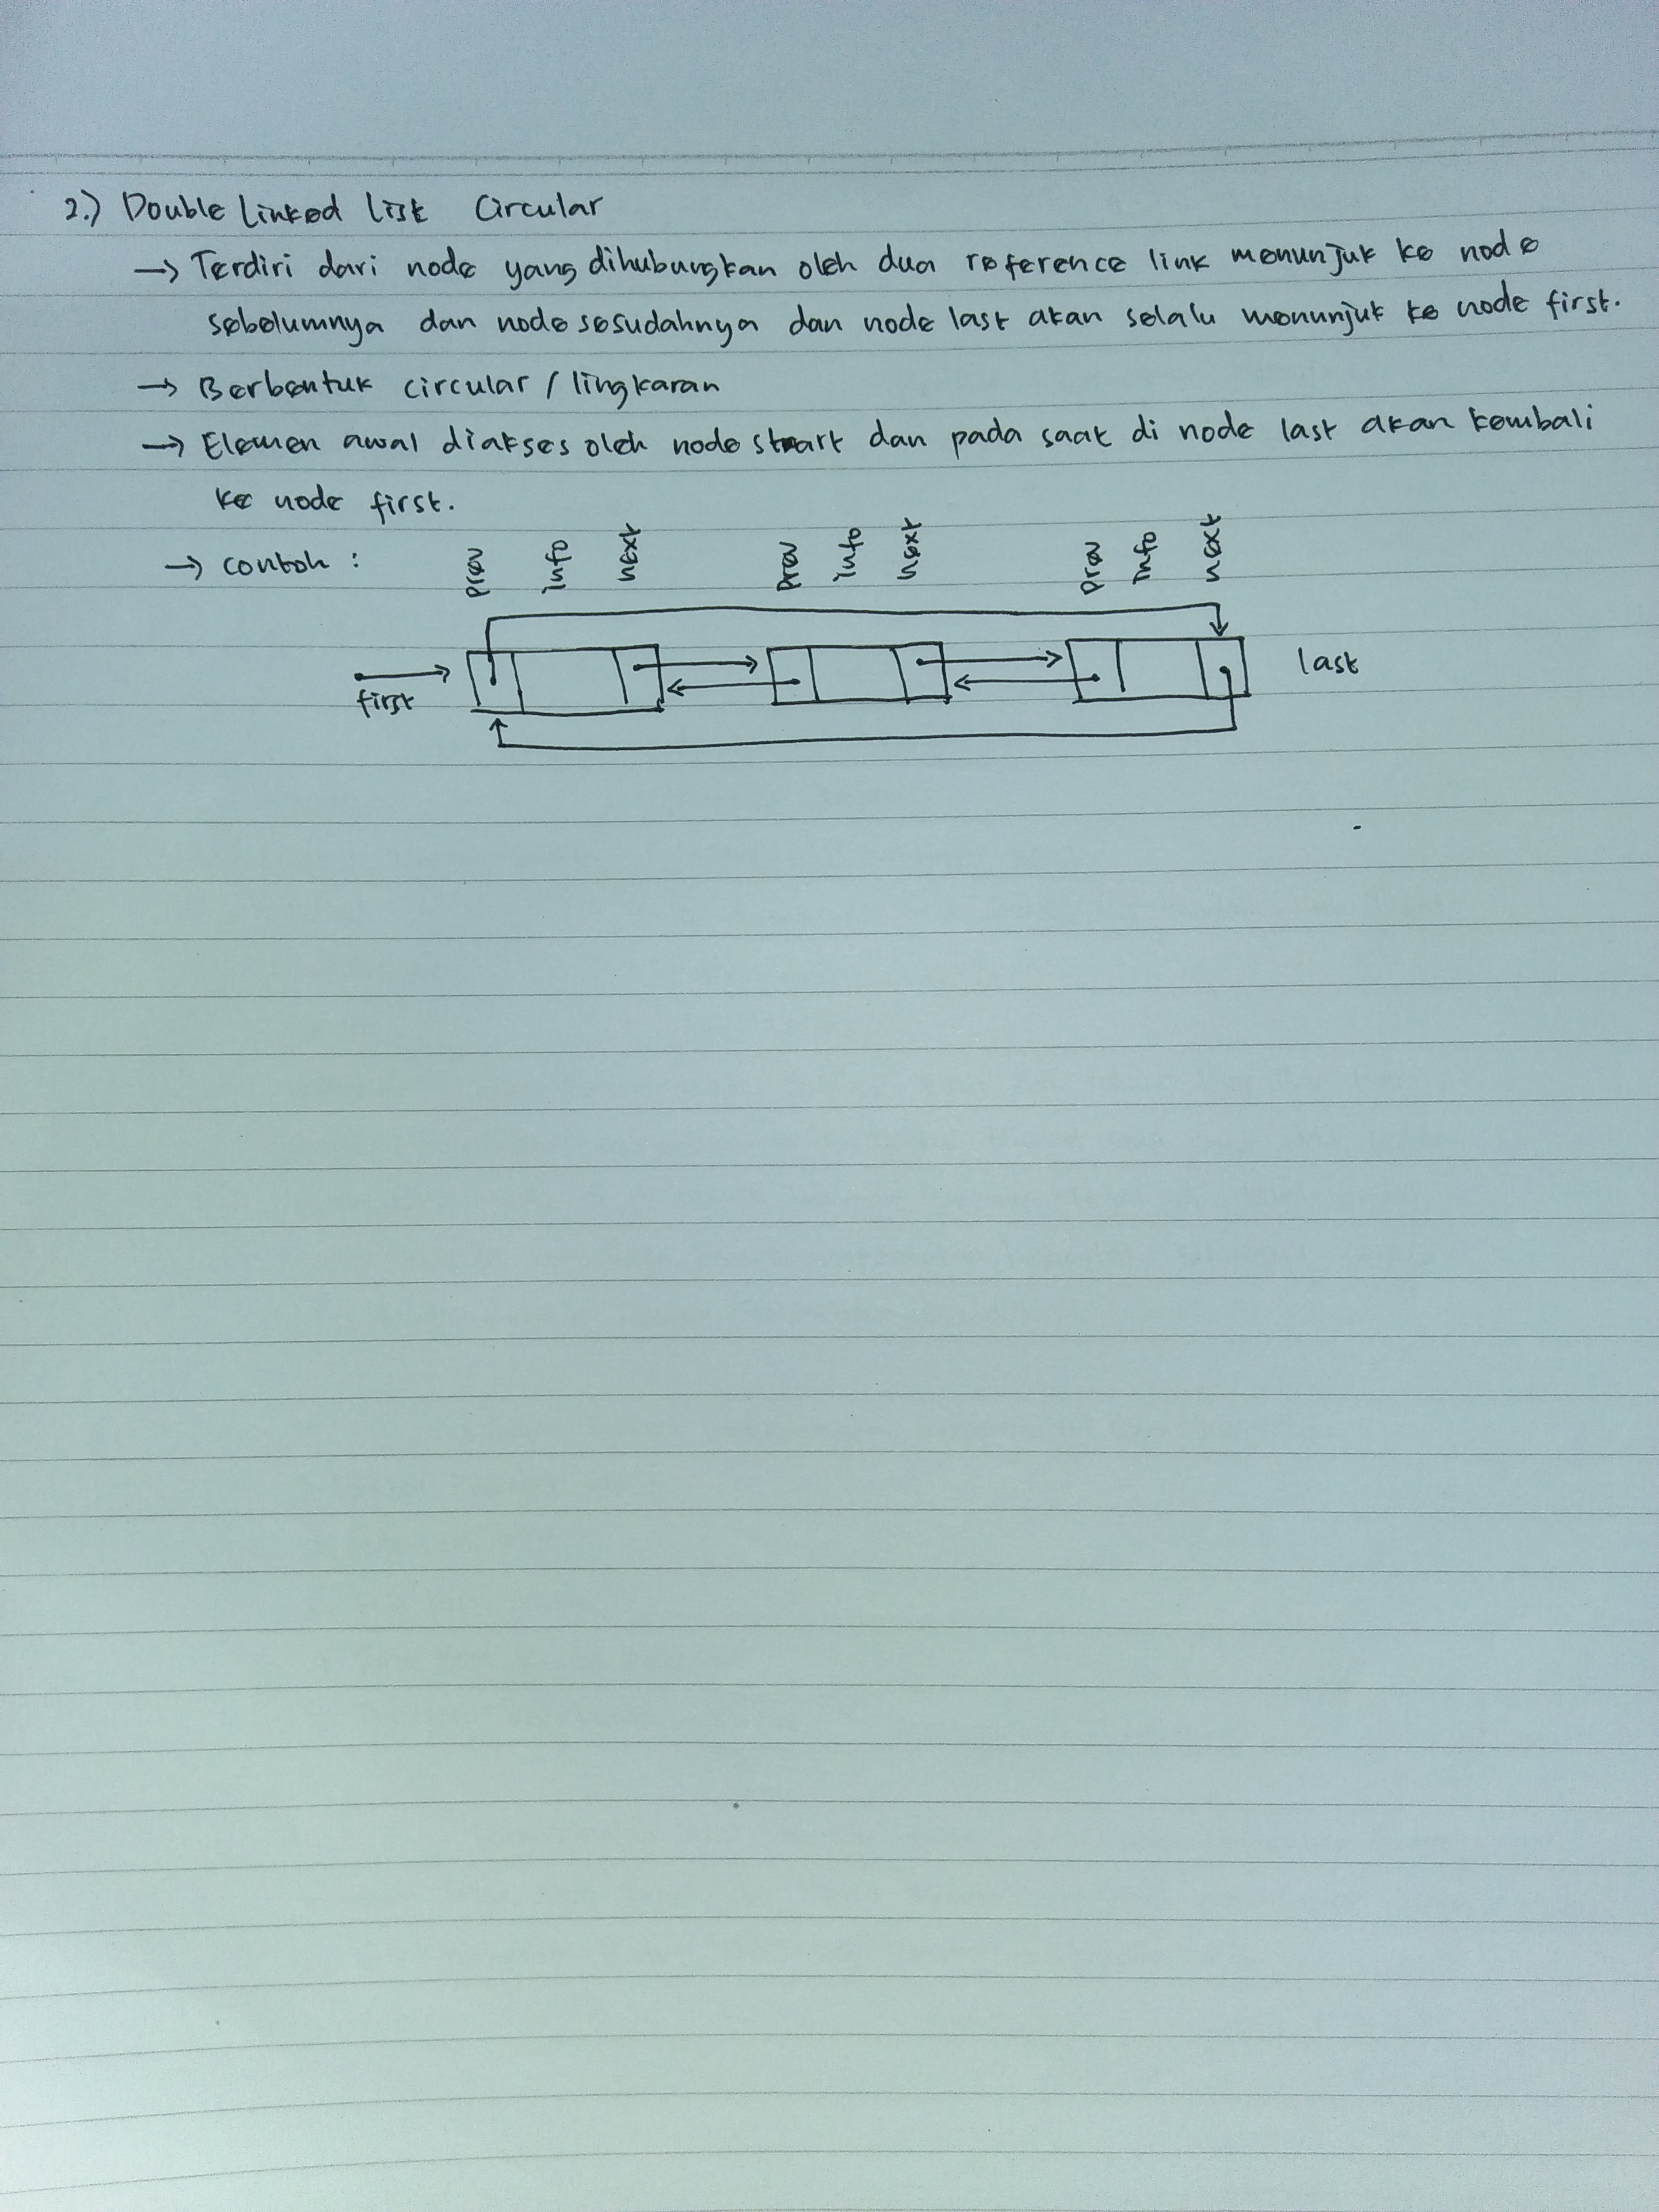 2.) Double Linked List Circular
→ Terdiri dari node yang dihubungkan oleh dua reference link menunjuk ke node
sebelumnya dan node sesudahnya dan node last akan selalu menunjuk ke node first.
→ Berbentuk circular / lingkaran
→ Elemen awal diakses oleh node start dan pada saat di node last akan kembali
ke node first.
→ contoh :
prev info next prev info next prev info next
first last